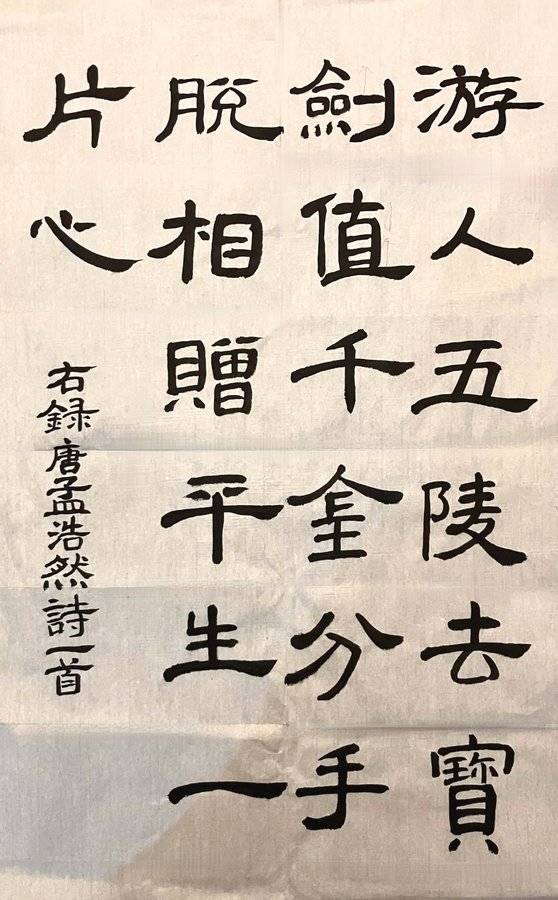 游人五陵去寶
劍值千金分手
脫相贈平生一
片心
右録唐孟浩然詩一首